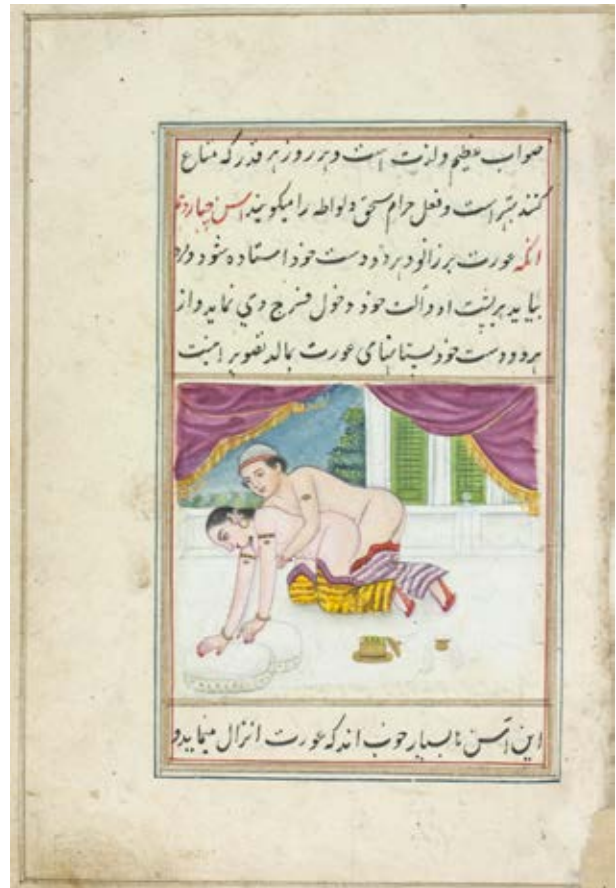 صواب عظیم و لذت است و هر روز هر قدر که متاع
کنند بهتر است و فعل حرام سحق و لواطه را میکویند اسن چهاردهم
انکه عورت بر زانو و بر دو دست خود استاده شود و مرد
بیاید بر پشت او و آلت خود دخول فرج وی نماید و از
هر دو دست خود پستانهای عورت بمالد تصویر اینست
این اسن نا بسیار خوب اند که عورت انزال مینماید و